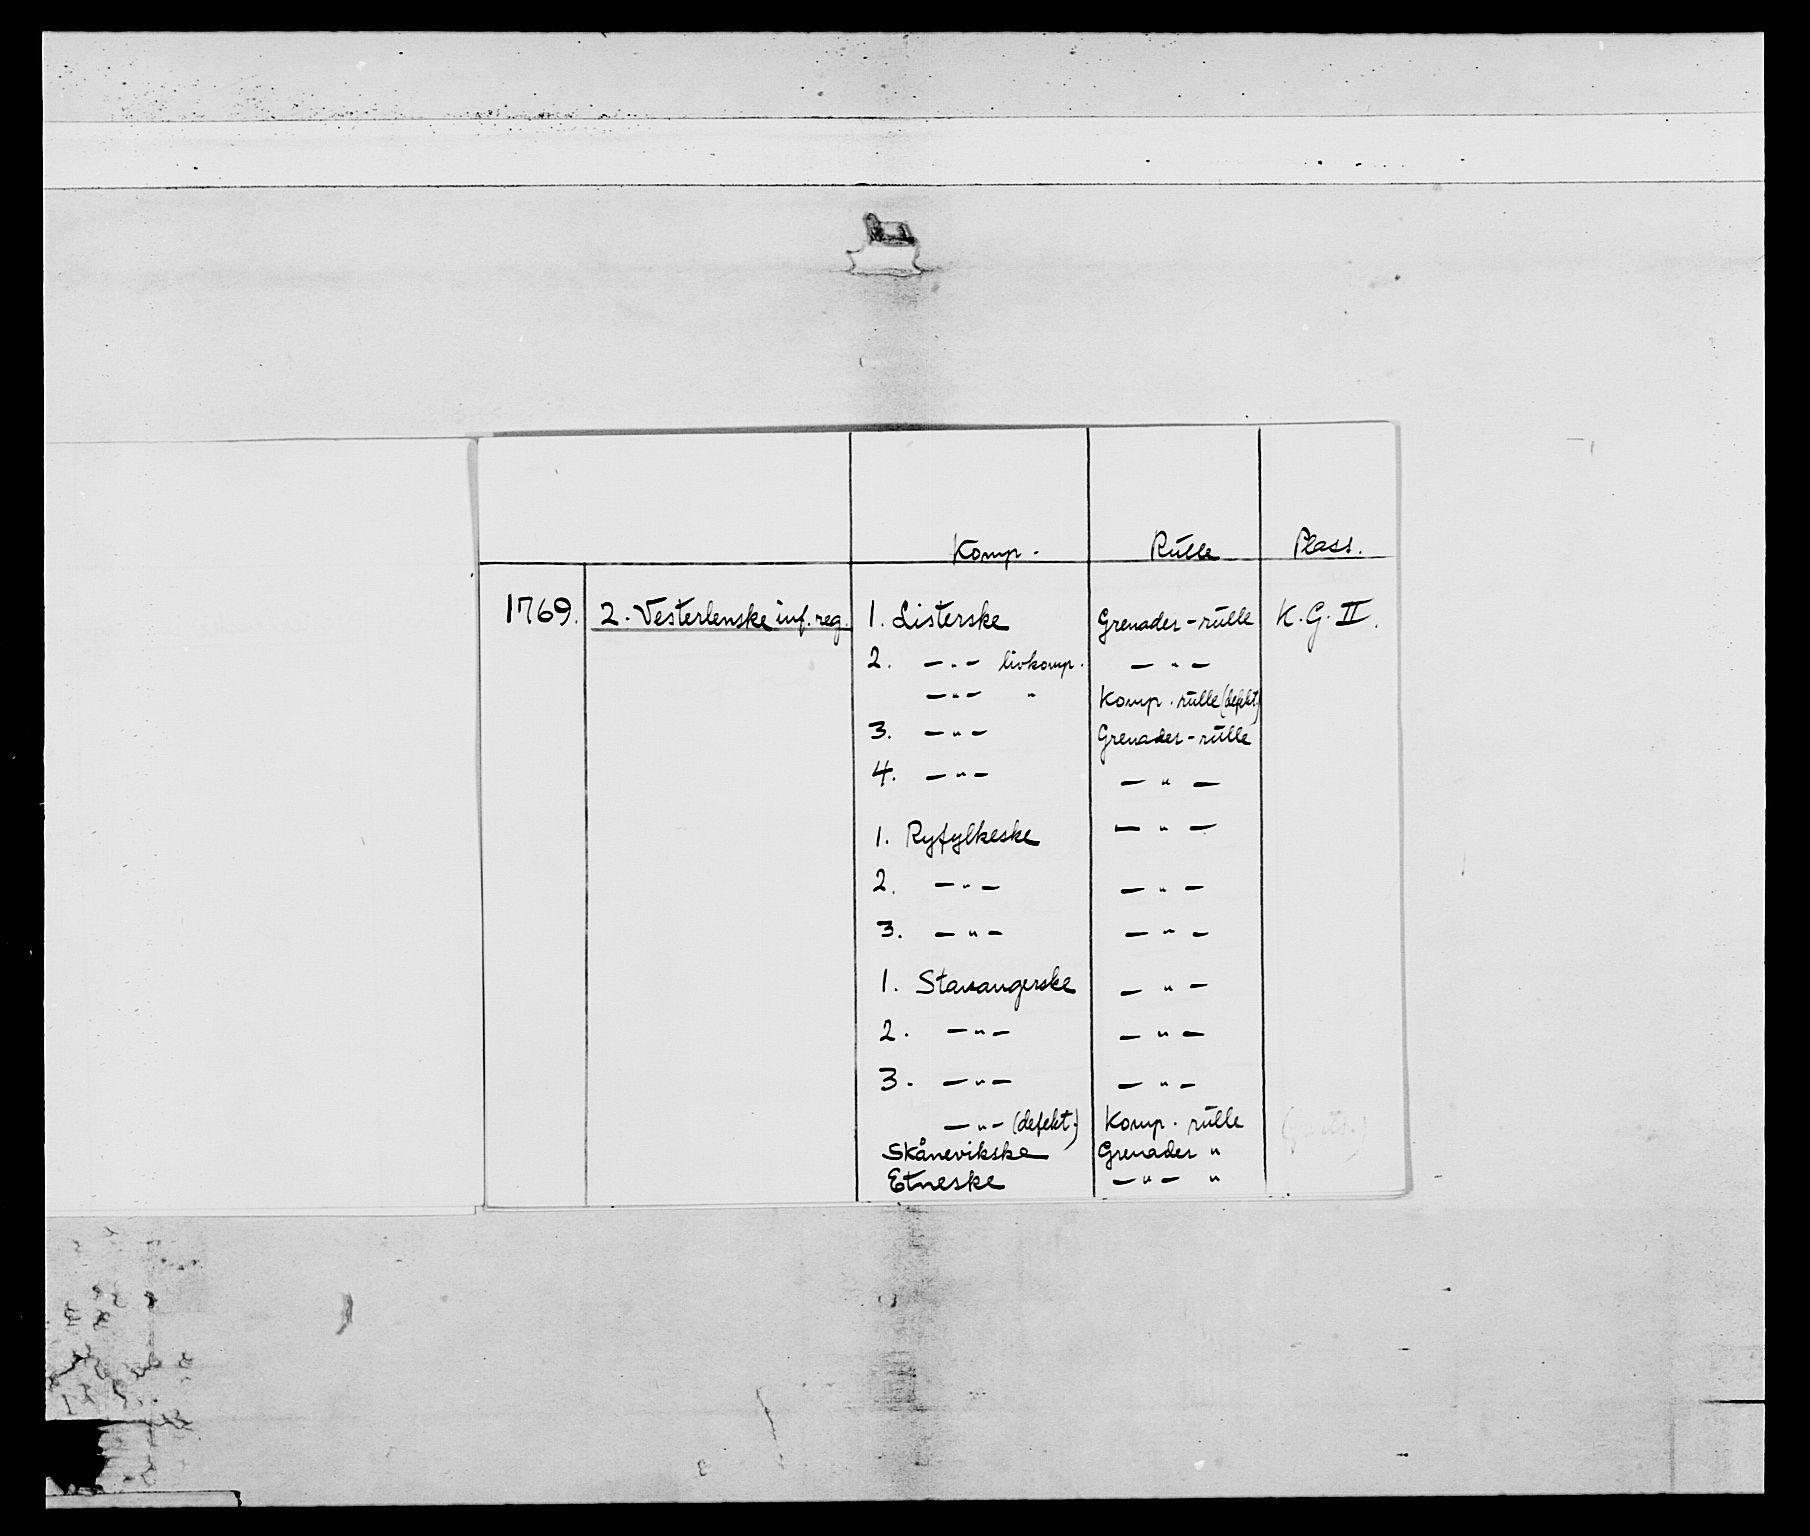 Komp. Rulle Plass.
1769. 2. Vesterlenske inf. reg. 1. Listerske Grenader-rulle K. G. II.
2. — „ — livkomp. — „ —
— „ — „ Komp. rulle (defekt)
3. — „ — Grenader-rulle
4. — „ — — „ —
1. Ryfylkeske — „ —
2. — „ — — „ —
3. — „ — — „ —
1. Stavangerske — „ —
2. — „ — — „ —
3. — „ — — „ —
— „ — (defekt.) Komp. rulle
Skånevikske Grenader „
Etneske — „ — „